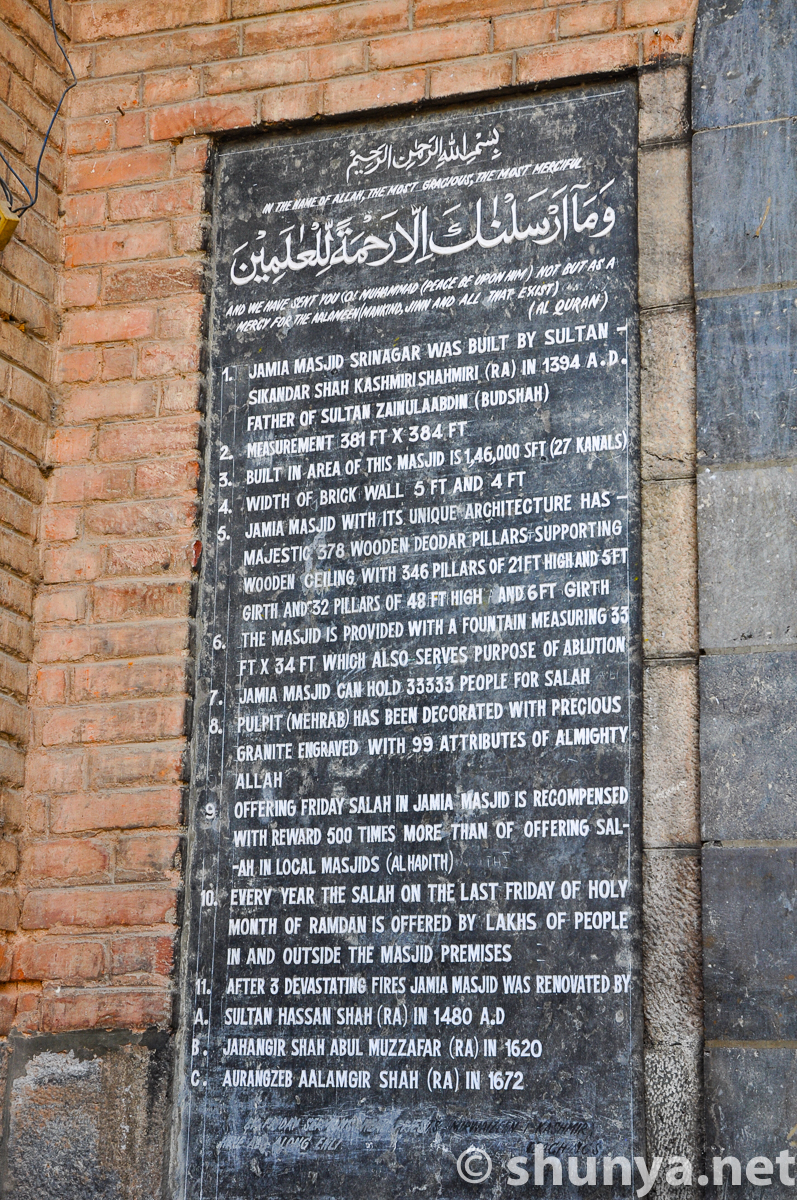 بِسْمِ اللهِ الرَّحْمٰنِ الرَّحِيْمِ
IN THE NAME OF ALLAH, THE MOST GRACIOUS, THE MOST MERCIFUL
وَمَآ اَرْسَلْنٰكَ اِلَّا رَحْمَةً لِّلْعٰلَمِيْنَ
AND WE HAVE SENT YOU (O! MUHAMMAD (PEACE BE UPON HIM) NOT BUT AS A
MERCY FOR THE AALAMEEN (MANKIND, JINN AND ALL THAT EXIST)
(AL QURAN)
1. JAMIA MASJID SRINAGAR WAS BUILT BY SULTAN -
SIKANDAR SHAH KASHMIRI SHAHMIRI (RA) IN 1394 A.D.
FATHER OF SULTAN ZAINULAABDIN (BUDSHAH)
2. MEASUREMENT 381 FT X 384 FT
3. BUILT IN AREA OF THIS MASJID IS 1,46,000 SFT (27 KANALS)
4. WIDTH OF BRICK WALL 5 FT AND 4 FT
5. JAMIA MASJID WITH ITS UNIQUE ARCHITECTURE HAS -
MAJESTIC 378 WOODEN DEODAR PILLARS SUPPORTING
WOODEN CEILING, WITH 346 PILLARS OF 21 FT HIGH AND 5 FT
GIRTH AND 32 PILLARS OF 48 FT HIGH AND 6 FT GIRTH
6. THE MASJID IS PROVIDED WITH A FOUNTAIN MEASURING 33
FT X 34 FT WHICH ALSO SERVES PURPOSE OF ABLUTION
7. JAMIA MASJID CAN HOLD 33333 PEOPLE FOR SALAH
8. PULPIT (MEHRAB) HAS BEEN DECORATED WITH PRECIOUS
GRANITE ENGRAVED WITH 99 ATTRIBUTES OF ALMIGHTY
ALLAH
9 OFFERING FRIDAY SALAH IN JAMIA MASJID IS RECOMPENSED
WITH REWARD 500 TIMES MORE THAN OF OFFERING SAL-
-AH IN LOCAL MASJIDS (AL HADITH)
10. EVERY YEAR THE SALAH ON THE LAST FRIDAY OF HOLY
MONTH OF RAMDAN IS OFFERED BY LAKHS OF PEOPLE
IN AND OUTSIDE THE MASJID PREMISES
11. AFTER 3 DEVASTATING FIRES JAMIA MASJID WAS RENOVATED BY
A. SULTAN HASSAN SHAH (RA) IN 1480 A.D
B. JAHANGIR SHAH ABUL MUZZAFAR (RA) IN 1620
C. AURANGZEB AALAMGIR SHAH (RA) IN 1672
© shunya.net